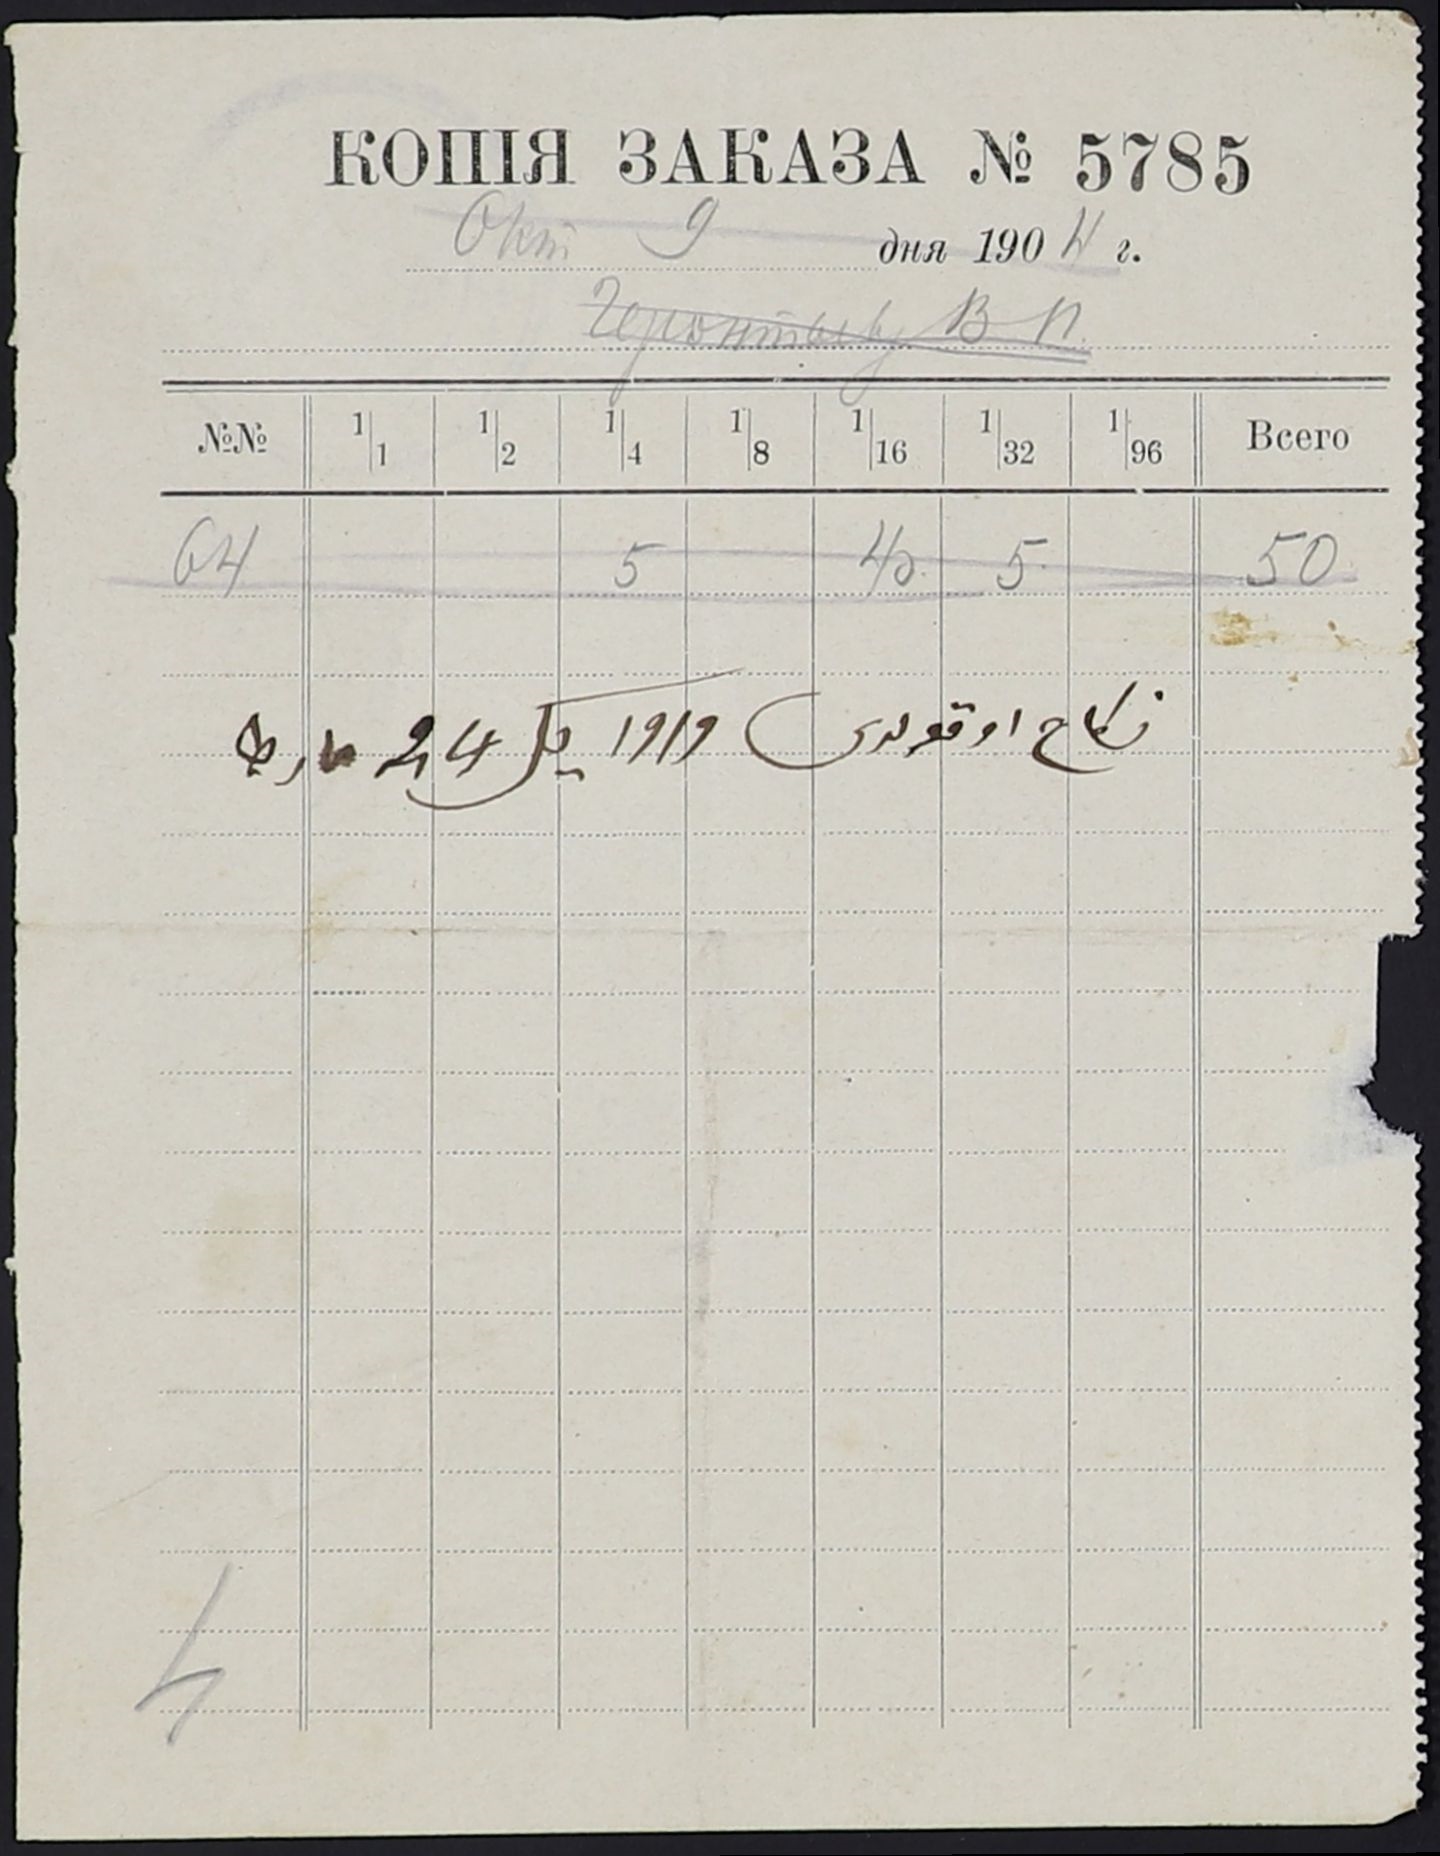 КОПІЯ ЗАКАЗА № 5785
Окт 9 дня 1904 г.
Геронтьеву В П.
№№ 1/1 1/2 1/4 1/8 1/16 1/32 1/96 Всего
64 5 40. 5. 50
نكاح اوقولدى 1919 يل 24
4